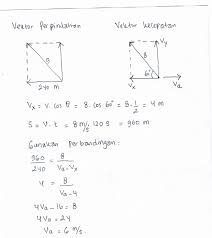 Vektor Perpindahan Vektor kecepatan
8
240 m
Vy
8
60°
Vx Va
Vx = V. cos θ = 8. cos 60° = 8. 1/2 = 4 m
S = V. t = 8 m/s. 120 s = 960 m
Gunakan Perbandingan:
960/240 = 8/Va-Vx
4 = 8/Va-4
4Va - 16 = 8
4Va = 24
Va = 6 m/s.